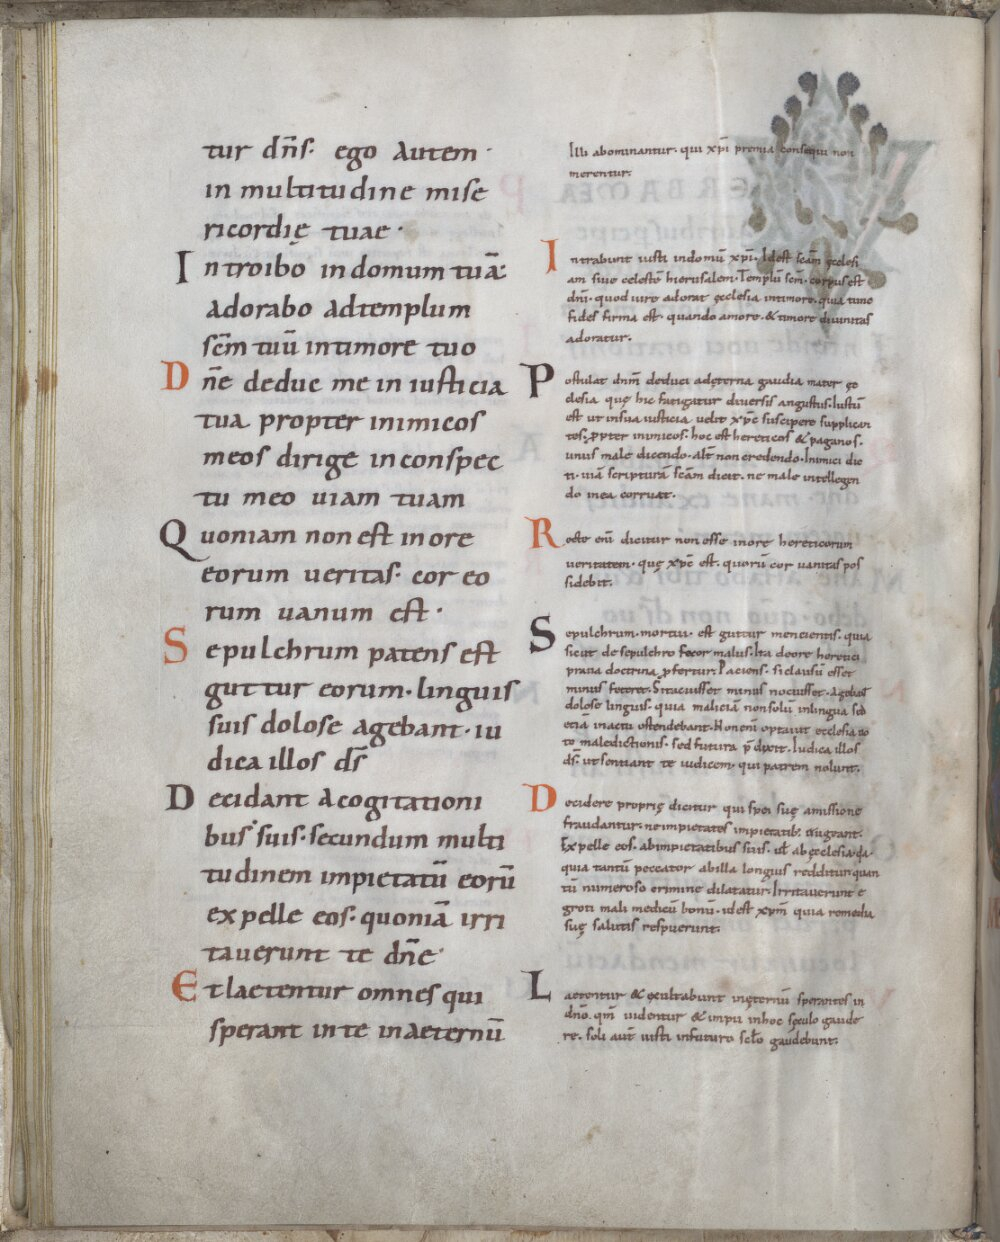 tur dn̄s· ego autem·
in multitudine mise
ricordię tuae·
Introibo indomum tuā·
adorabo adtemplum
sc̄m tuū intimore tuo
Dn̄e deduc me in iusticia
tua propter inimicos
meos dirige inconspec
tu meo uiam tuam
Quoniam non est inore
eorum ueritas· cor eo
rum uanum est·
Sepulchrum patens est
guttur eorum· linguis
suis dolose agebant· iu
dica illos ds̄
Decidant acogitationi
bus suis· secundum multi
tudinem impietatū eorū
expelle eos· quoniā irri
tauerunt te dn̄e·
Et laetentur omnes qui
sperant inte inaeternū
Illi abominantur· qui xpī premia consequi non
merentur·
Intrabunt iusti indomū xpī· Idest scām ęclesi
am siue celestē hierusalem· Templū scm̄· corpus est
dnī· quod uire adorat ecclesia intimore· quia tunc
fides firma est· quando amore· & timore diuinitas
adoratur·
Postulat dnm̄ deduci adęterna gaudia mater ęc
clesia quę hic fatigatur diuersis angustiis· Iustū
est ut insua iusticia uelit xp̄c suscipere supplican
tes· ꝓpter inimicos· hoc est hereticos & paganos·
unus male dicendo· alt̄ non credendo· Inimici dic
ti· uiā scripturā scām dicit· ne male intellegen
do inea corruat·
Recte enī dicitur non esse inore hereticorum
ueritatem· quę xp̄c est· quorū cor uanitas pos
sidebit·
Sepulchrum· mortui· est guttur mencientis· quia
sicut de sepulchro fetor malus· Ita deore heretici
praua doctrina ꝓfertur· Patens· si clausū esset
minus feteret· Si tacuisset minus nocuisset· Agebāt
dolose linguis· quia maliciā nonsolū inlingua sed
eciā inactu ostendebant· Non enī optauit ecclesia uo
to maledictionis· sed futura p̄dixit· Iudica illos
ds̄· ut sentiant te iudicem· qui patrem nolunt·
Decidere proprię dicitur qui spei suę amissione
fraudantur· ne impietates impietatib; augeant·
Expelle eos· abimpietatibus suis· ut̄ ab ęcclesia·
quia tantū peccator abilla longius redditur quan
tū numeroso crimine dilatatur· Irritauerunt ę
groti mali medicū bonū· idest xpm̄ quia remedia
suę salutis respuerunt·
Laetentur & exultabunt inęternū sperantes in
dnō· qm̄ uidentur & impii inhoc sęculo gaude
re· soli aut̄ iusti infuturo scl̄o gaudebunt·